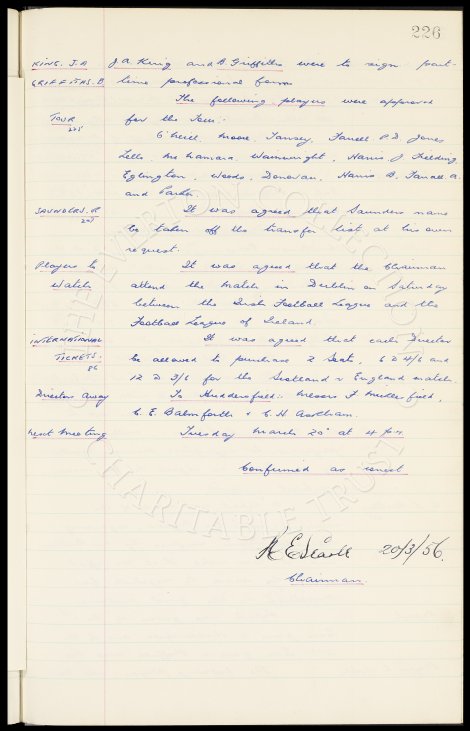 226
KING. J.A J.A King and B. Griffiths were to sign part-
GRIFFITHS. B time professional forms
The following players were approved
TOUR for the Tour:-
225 O'Neill, Moore, Tansey, Farrell. P.D. Jones
Lello, McNamara, Wainwright, Harris J Fielding
Eglington, Woods, Donovan, Harris B. Farrall A.
and Parker.
SAUNDERS. R It was agreed that Saunders name
be taken off the transfer list, at his own
request.
Players to It was agreed that the Chairman
Watch attend the match in Dublin on Saturday
between the Irish Football League and the
Football League of Ireland.
INTERNATIONAL It was agreed that each Director
TICKETS. be allowed to purchase 2 Seats, 6 @ 4/6 and
86 12 @ 3/6 for the Scotland v England match.
Directors away To Huddersfield:- Messrs F Micklesfield,
C. E. Balmforth & C. H. Askham.
Next Meeting Tuesday March 20 at 4 p.m
Confirmed as correct
R E Searle 20/3/56.
Chairman.
THE EVERTON COLLECTION
CHARITABLE TRUST